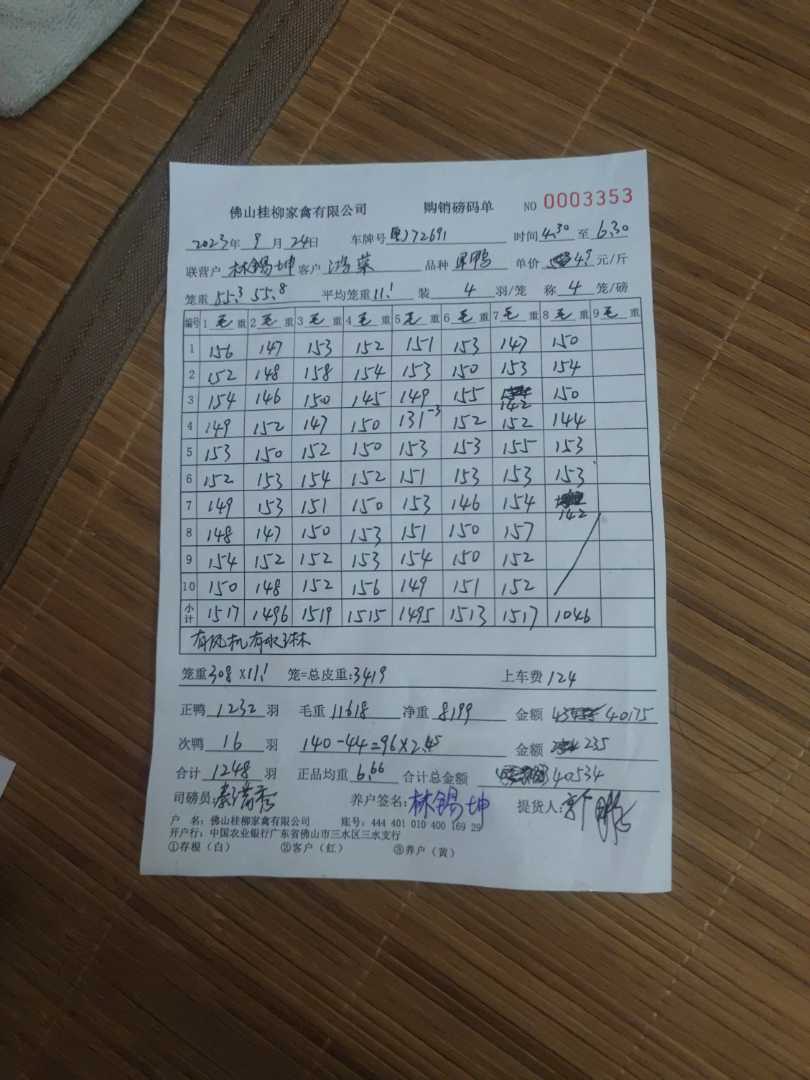 佛山桂柳家禽有限公司 购销磅码单 NO 0003353
2023年 9月 24日 车牌号 72691 时间 4:30 至 6:30
联营户 林锡坤 客户 鸿荣 品种 鸭 单价 4.9 元/斤
笼重 55.3 55.8 平均笼重 11.1 装 4 羽/笼 称 4 笼/磅
编号 1 毛 重 2 毛 重 3 毛 重 4 毛 重 5 毛 重 6 毛 重 7 毛 重 8 毛 重 9 毛 重
1 156 147 153 152 151 153 147 150
2 152 148 158 154 153 150 153 154
3 154 146 150 145 149 155 142 150
4 149 152 147 150 131-3 152 152 144
5 153 150 152 150 153 153 155 153
6 152 153 154 152 151 153 153 153
7 149 153 151 150 153 146 154 142
8 148 147 150 153 151 150 157
9 154 152 152 153 154 150 152
10 150 148 152 156 149 151 152
小计 1517 1496 1519 1515 1495 1513 1517 1046
有风机有水淋
笼重 308×11.1 笼=总皮重:3419 上车费 124
正鸭 1232 羽 毛重 11618 净重 8199 金额 40175
次鸭 16 羽 140-44=96×2.45 金额 235
合计 1248 羽 正品均重 6.66 合计总金额 40534
司磅员: 养户签名: 林锡坤 提货人:
户 名: 佛山桂柳家禽有限公司 账号: 444 401 010 400 169 29
开户行: 中国农业银行广东省佛山市三水区三水支行
①存根（白） ②客户（红） ③养户（黄）